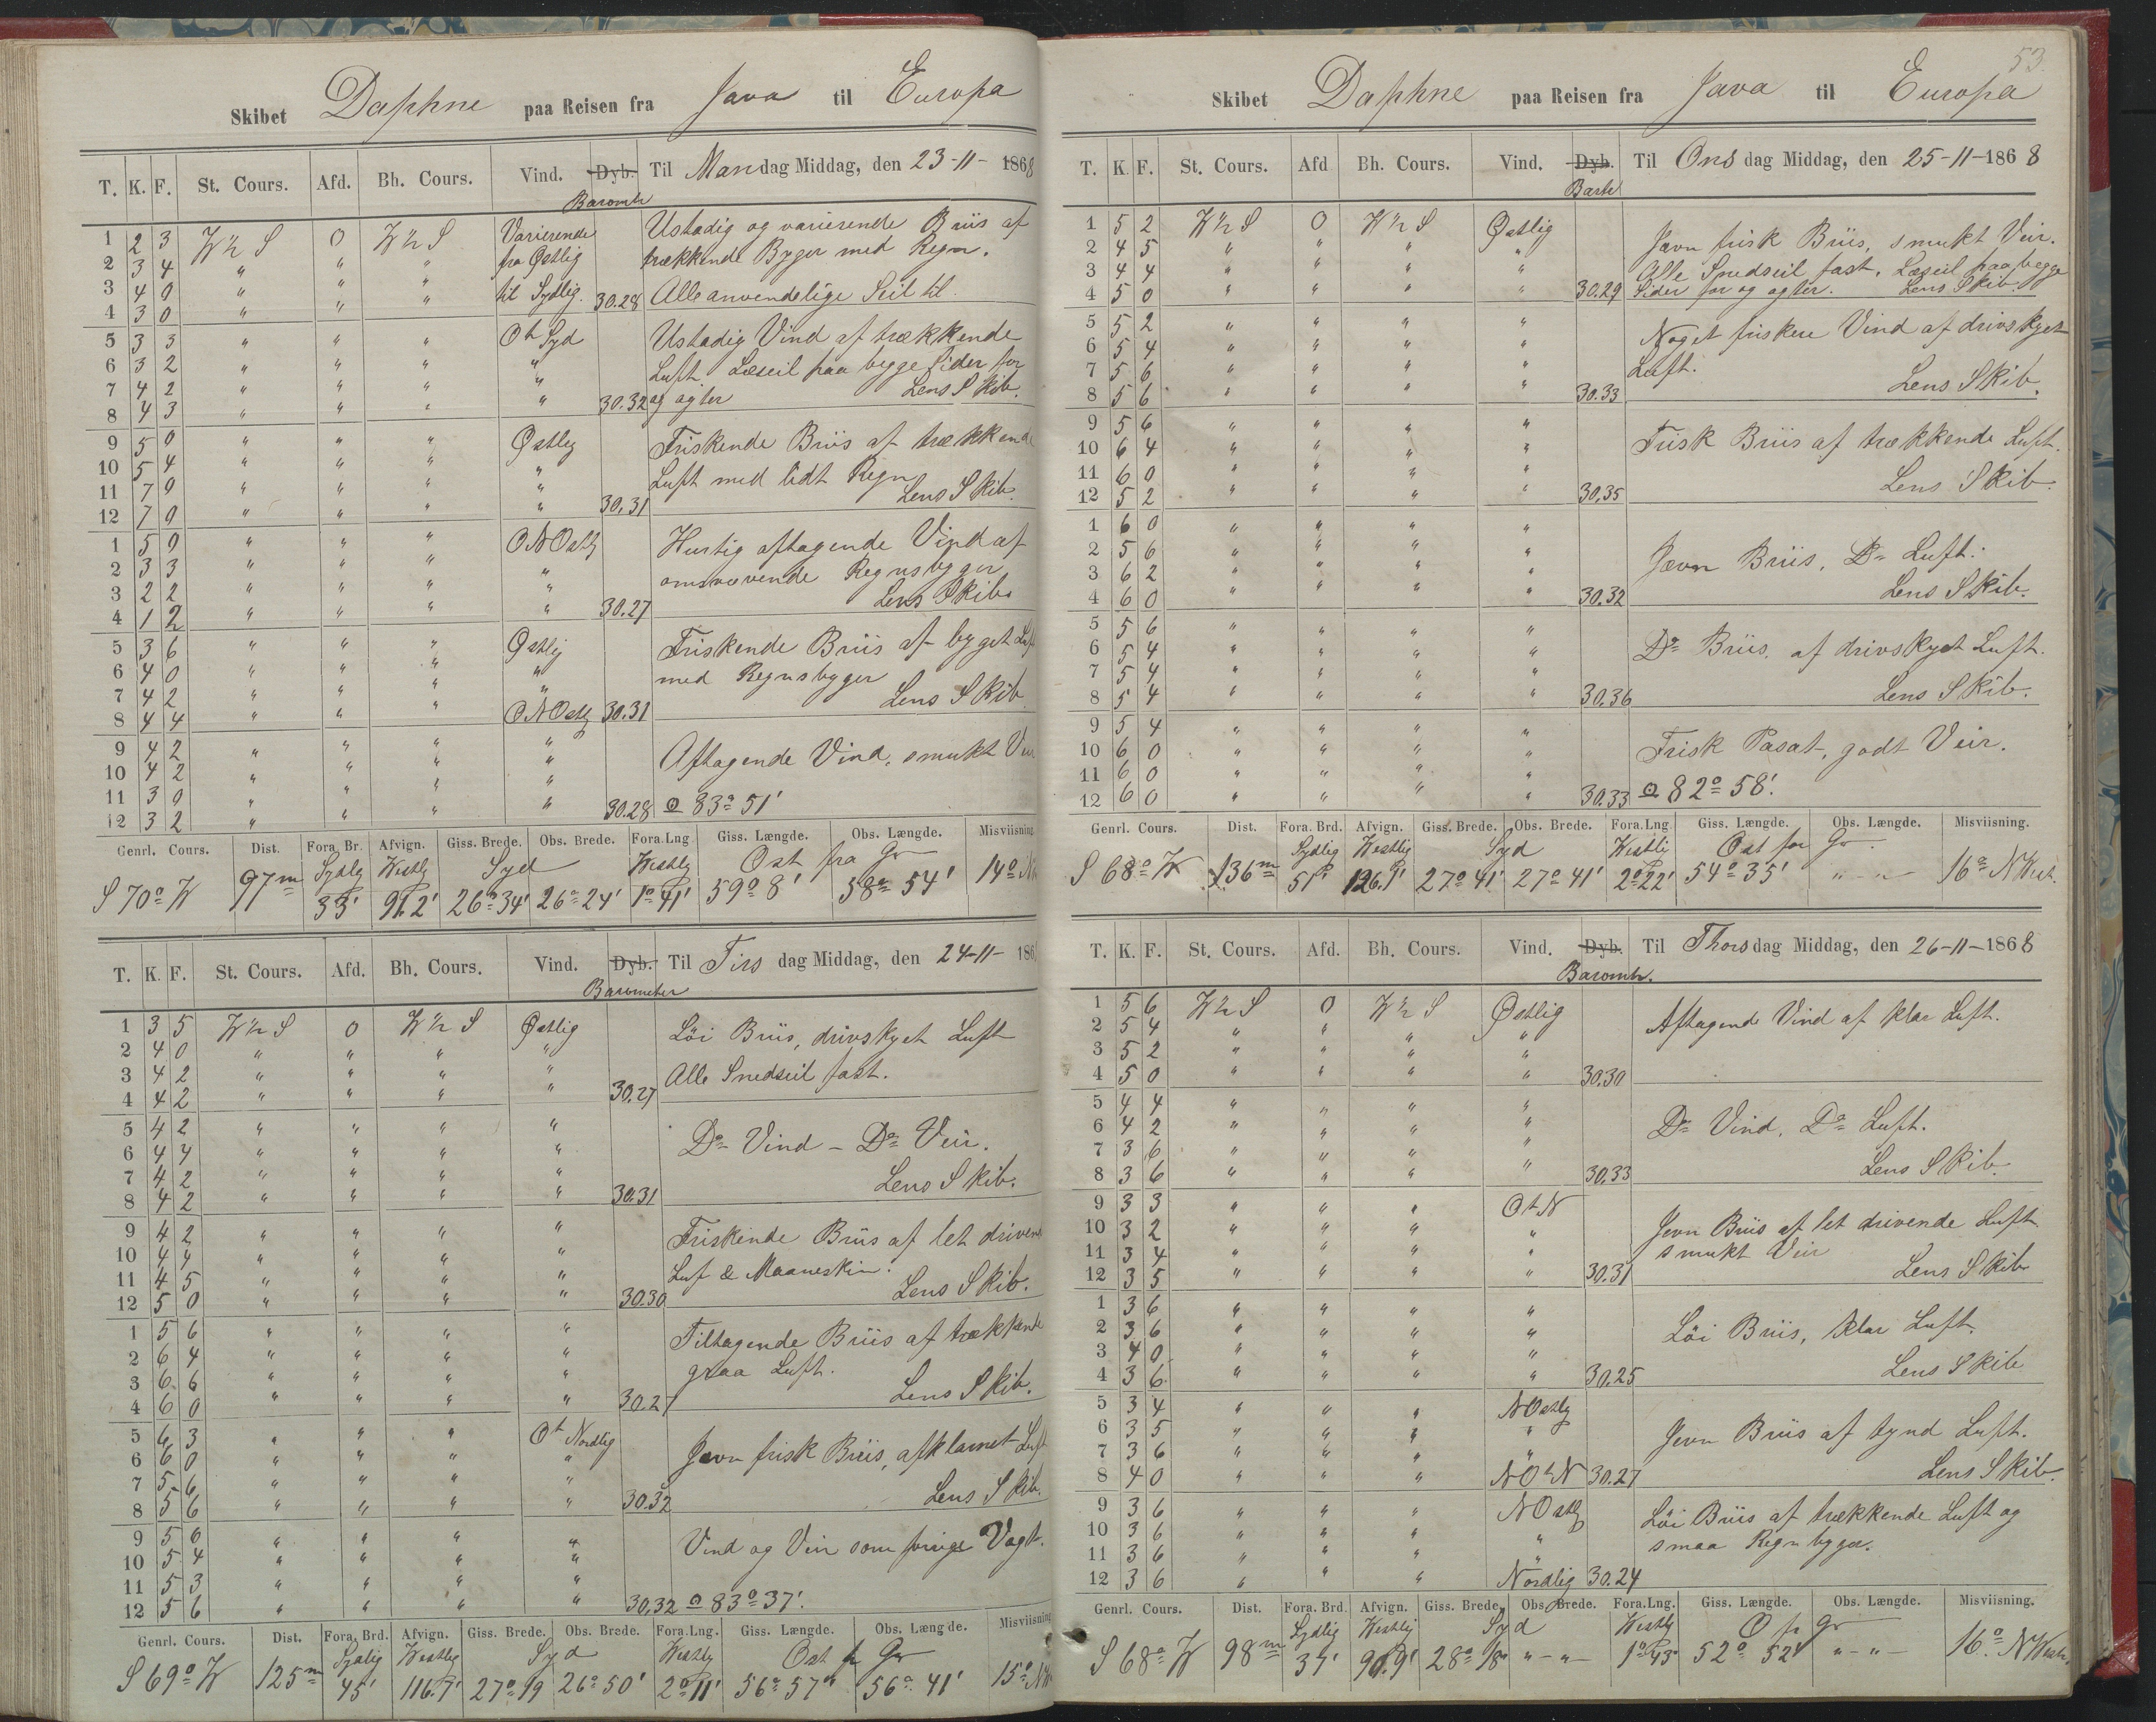 Skibet Daphne paa Reisen fra Java til Europa
T. K. F. St. Cours. Afd. Bh. Cours. Vind. Dyb. Til Mandag Middag, den 23-11-1868
Barometr
1 2 3 W½S 0 W½S Varierende Ustadig og varierende Briis af
2 3 4 " " " fra Østlig trækkende Byger med Regn.
3 4 0 " " " til Sydlig. 30.28 Alle anvendelige Seil til.
4 3 0 " " "
5 3 3 " " " OtSyd Ustadig Vind af trækkende
6 3 2 " " " " Luft Læseil paa begge Sider for
7 4 2 " " " " og agter Lens Skib.
8 4 3 " " " " 30.32
9 5 0 " " " Østlig Friskende Briis af trækkende
10 5 4 " " " " Luft med lidt Regn
11 7 0 " " " " Lens Skib.
12 7 0 " " " " 30.31
1 5 0 " " " ONOstlg Hurtig aftagende Vind af
2 3 3 " " " " omsvævende Regnsbyger
3 2 2 " " " " Lens Skib.
4 1 2 " " " " 30.27
5 3 6 " " " Østlig Friskende Briis af byget Luft
6 4 0 " " " " med Regnsbyger
7 4 2 " " " " Lens Skib
8 4 4 " " " ONOstlg 30.31
9 4 2 " " " " Aftagende Vind, smukt Veir
10 4 2 " " " "
11 3 0 " " " " 30.28 83° 51'
12 3 2 " " "
Genrl. Cours. Dist. Fora. Br. Afvign. Giss. Brede. Obs. Brede. Fora.Lng Giss. Længde. Obs. Længde. Misviisning.
Sydlig Westlig Syd Westlig Ost fra Gr
S 70° W 97m 33' 91.2' 26° 34' 26° 24' 1° 41' 59° 8' 58° 54' 14° N
T. K. F. St. Cours. Afd. Bh. Cours. Vind. Dyb. Til Tirsdag Middag, den 24-11-186
Barometer
1 3 5 W½S 0 W½S Østlig Löi Briis, drivskyet Luft
2 4 0 " " " "
3 4 2 " " " " Alle Snedseil fast.
4 4 2 " " " " 30.27
5 4 2 " " " " Do Vind - Do Veir.
6 4 4 " " " "
7 4 2 " " " " Lens Skib.
8 4 2 " " " " 30.31
9 4 2 " " " " Friskende Briis af let drivend
10 4 4 " " " " Luf & Maaneskin.
11 4 5 " " " " Lens Skib.
12 5 0 " " " " 30.30
1 5 6 " " " " Tiltagende Briis af trækkende
2 6 4 " " " " graa Luft.
3 6 6 " " " " Lens Skib.
4 6 0 " " " " 30.27
5 6 3 " " " Ot Nordlig Jevn frisk Briis, afklarnet Luft
6 6 0 " " " "
7 5 6 " " " " Lens Skib.
8 5 6 " " " " 30.32
9 5 6 " " " " Vind og Veir som forrige Vagt.
10 5 4 " " " "
11 5 3 " " " "
12 5 6 " " " " 30.32 83° 37'.
Genrl. Cours. Dist. Fora. Brd. Afvign. Giss. Brede. Obs. Brede. Fora.Lng. Giss. Længde. Obs. Længde. Misviisning
Sydlig Westlig Syd Westlig Ost fr Gr
S 69° W 125m 45' 116.7' 27° 19 26° 50' 2° 11' 56° 57' 56° 41' 15° N
53.
Skibet Daphne paa Reisen fra Java til Europa
T. K. F. St. Cours. Afd Bh. Cours. Vind. Dyb. Til Onsdag Middag, den 25-11-1868
1 5 2 W½S 0 W½S Østlig Jævn frisk Briis, smukt Veir.
2 4 5 " " " " Alle Snedseil fast. Læseil paa begge
3 4 4 " " " " Sider for og agter. Lens Skib.
4 5 0 " " " " 30.29
5 5 2 " " " " Noget friskere Vind af drivskyet
6 5 4 " " " " Luft.
7 5 6 " " " " Lens Skib.
8 5 6 " " " " 30.33
9 5 6 " " " " Frisk Briis af trækkende Luft.
10 6 4 " " " "
11 6 0 " " " " Lens Skib.
12 5 2 " " " " 30.35
1 6 0 " " " "
2 5 6 " " " " Jævn Briis, Do Luft.
3 6 2 " " " " Lens Skib.
4 6 0 " " " " 30.32
5 5 6 " " " " Do Briis, af drivskyet Luft.
6 5 4 " " " "
7 5 4 " " " " Lens Skib.
8 5 4 " " " " 30.36
9 5 4 " " " " Frisk Pasat, godt Veir.
10 6 0 " " " "
11 6 0 " " " "
12 6 0 " " " " 30.33 82° 58'.
Genrl. Cours. Dist. Fora. Brd. Afvign. Giss. Brede. Obs. Brede. Fora.Lng. Giss. Længde. Obs. Længde. Misviisning.
Sydlig Westlig Syd Westli Ost for Gr
S 68° W 136m 51' 126.1' 27° 41' 27° 41' 2° 22' 54° 35' " - " - 16° NWest.
T. K. F. St. Cours. Afd. Bh. Cours. Vind. Dyb. Til Thorsdag Middag, den 26-11-1868
Barometr.
1 5 6 W½S 0 W½S Østlig Aftagende Vind af klar Luft.
2 5 4 " " " "
3 5 2 " " " "
4 5 0 " " " " 30.30
5 4 4 " " " " Do Vind, Do Luft.
6 4 2 " " " "
7 3 6 " " " "
8 3 6 " " " " 30.33 Lens Skib.
9 3 3 " " " OtN Jevn Briis af let drivende Luft
10 3 2 " " " " smukt Veir
11 3 4 " " " " Lens Skib
12 3 5 " " " " 30.31
1 3 6 " " " " Löi Briis, klar Luft.
2 3 6 " " " "
3 4 0 " " " "
4 3 6 " " " " 30.25 Lens Skib
5 3 4 " " " NOstlg Jevn Briis af tynd Luft.
6 3 5 " " " "
7 3 6 " " " "
8 4 0 " " " NOtN 30.27 Lens Skib.
9 3 6 " " " NOstlg Löi Briis af trækkende Luft og
10 3 6 " " " " smaa Regnbyger.
11 3 6 " " " "
12 3 6 " " " Nordlig 30.24
Genrl. Cours. Dist. Fora. Brd. Afvign. Giss. Brede. Obs. Brede. Fora.Lng. Giss. Længde. Obs. Længde. Misviisning.
Sydlig Westlig Syd Westlig O fr Gr
S 68° W 98m 37' 90.9' 28° 18' " - " - 1° 43' 52° 52' " - " - 16° NWest.